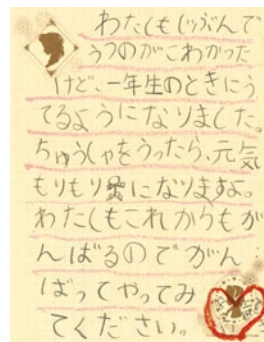 わたしもじぶんで
うつのがこわかった
けど、一年生のときにう
てるようになりました。
ちゅうしゃをうったら、元気
もりもりになりますよ。
わたしもこれからもが
んばるのでがん
ばってやってみ
てください。